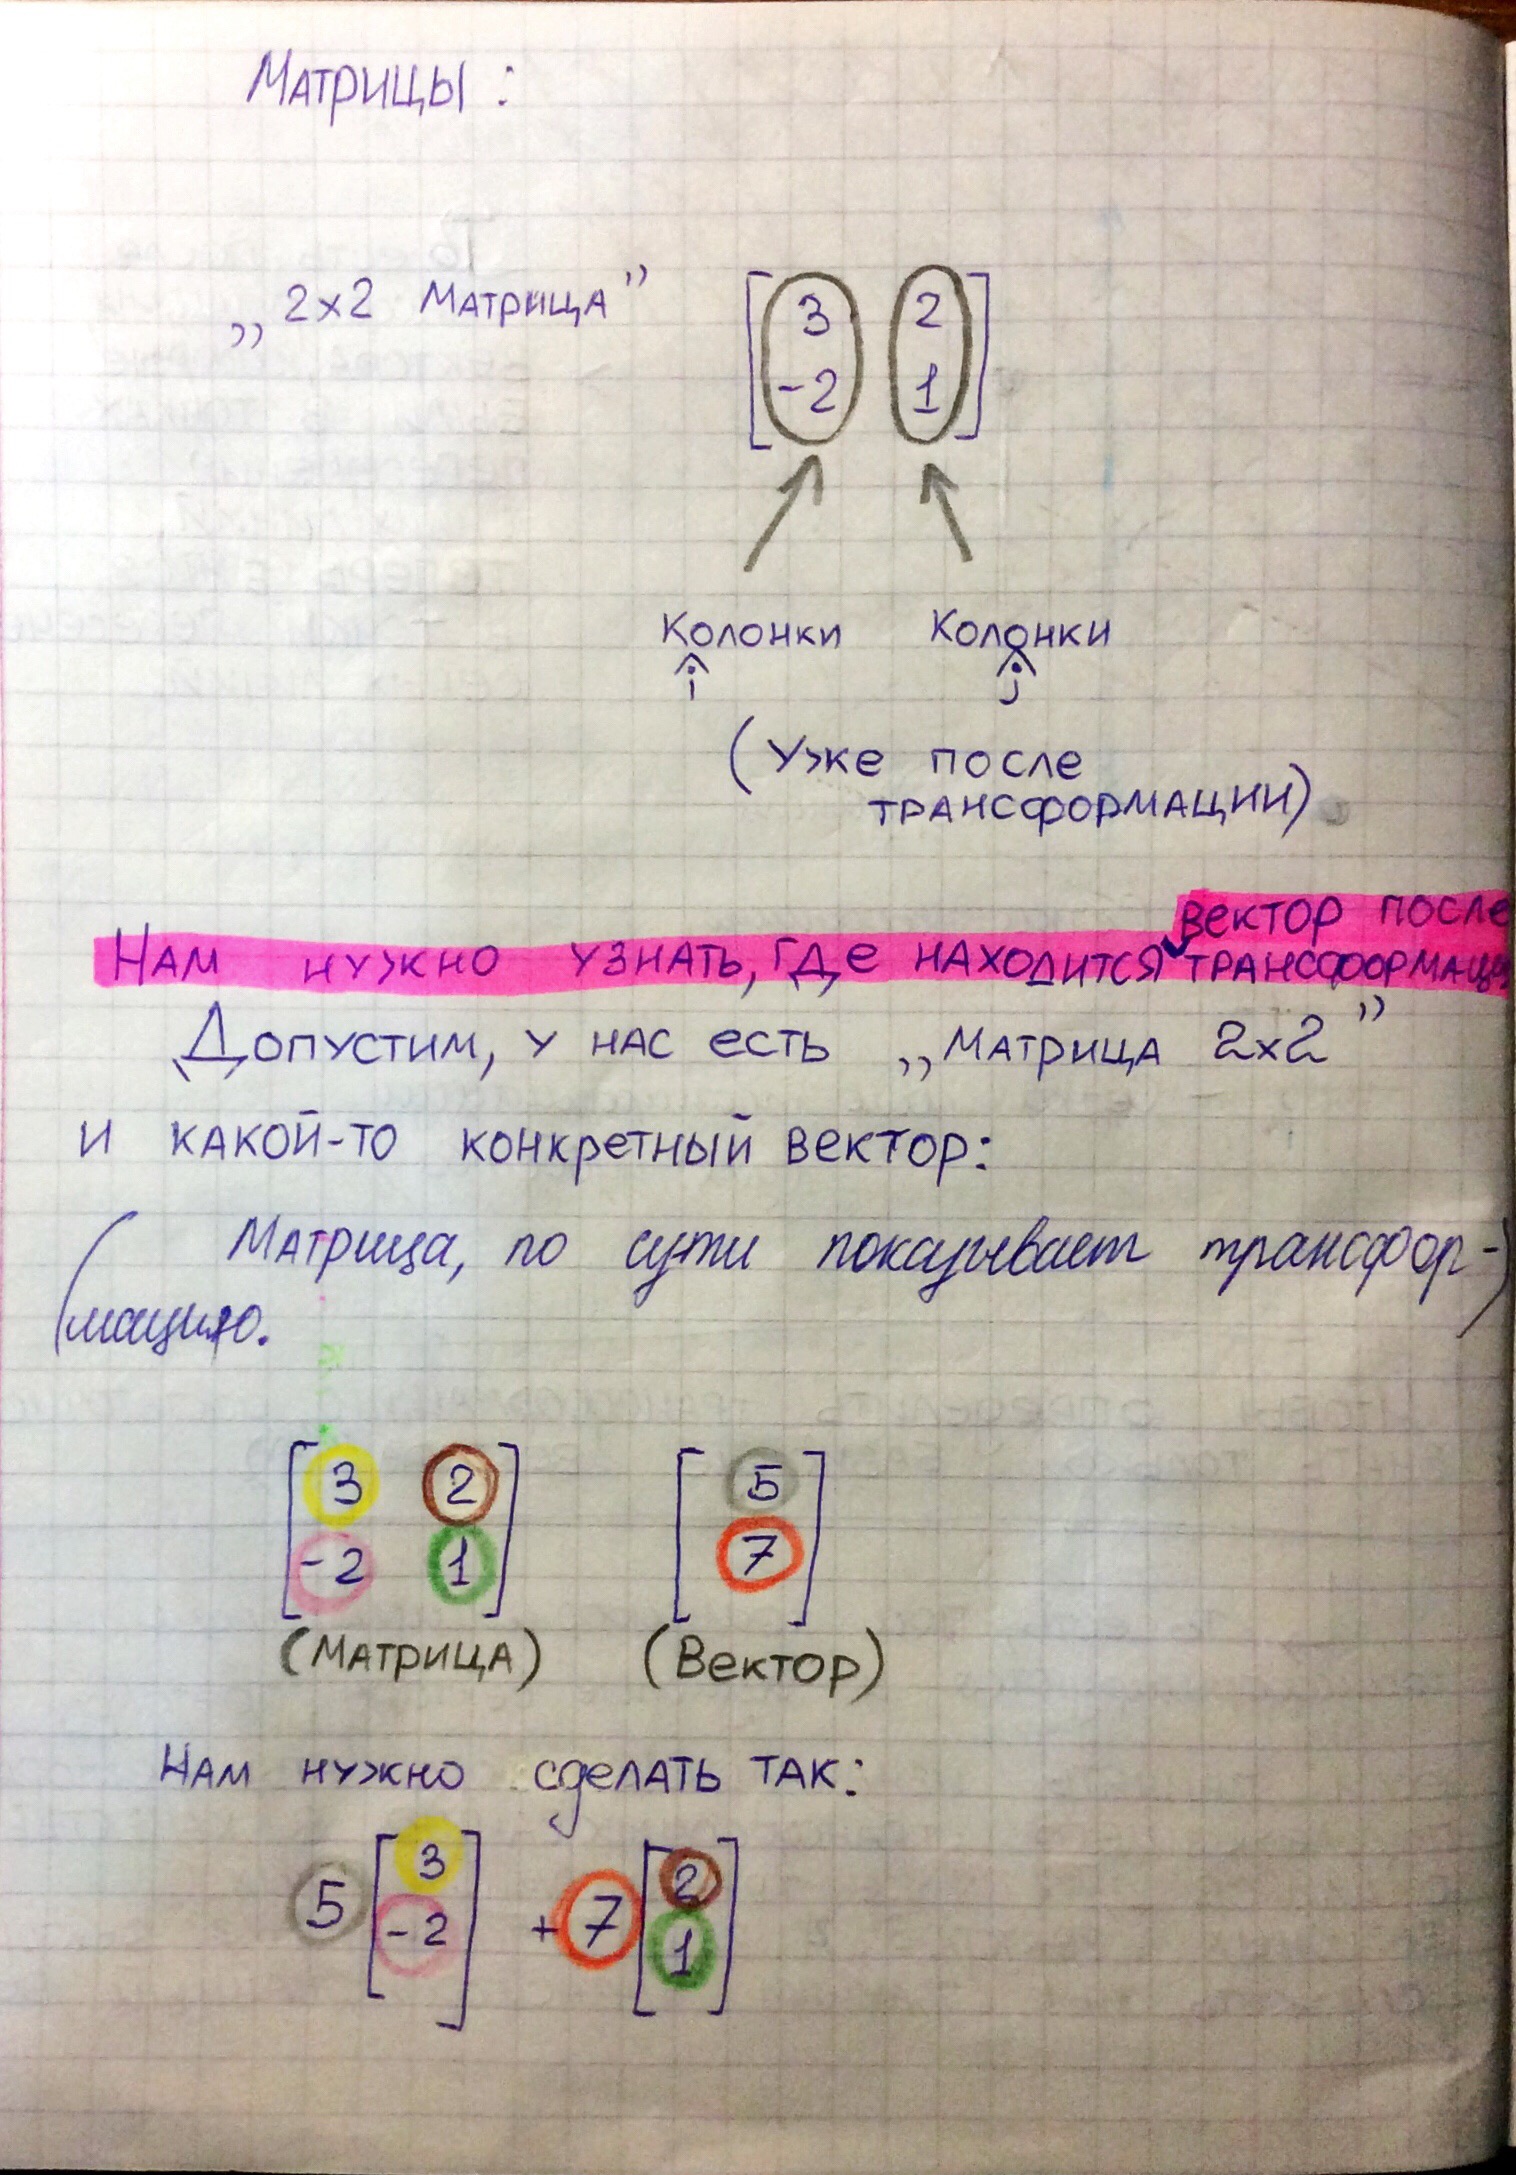 Матрицы:
„2x2 Матрица” [3 2]
[-2 1]
Колонки Колонки
î ĵ
(Уже после
трансформации)
вектор после
Нам нужно узнать, где находится трансформаци
Допустим, у нас есть „Матрица 2x2”
и какой-то конкретный вектор:
(Матрица, по сути показывает трансфор-)
мацию.
[3 2] [5]
[-2 1] [7]
(Матрица) (Вектор)
Нам нужно сделать так:
5 [3] + 7 [2]
[-2] [1]